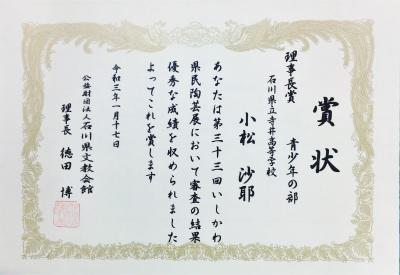 賞状
理事長賞 青少年の部
石川県立寺井高等学校
小松 沙耶
あなたは第三十三回いしかわ
県民陶芸展において審査の結果
優秀な成績を収められました
よってこれを賞します
令和三年一月十七日
公益財団法人 石川県文教会館
理事長 徳田 博